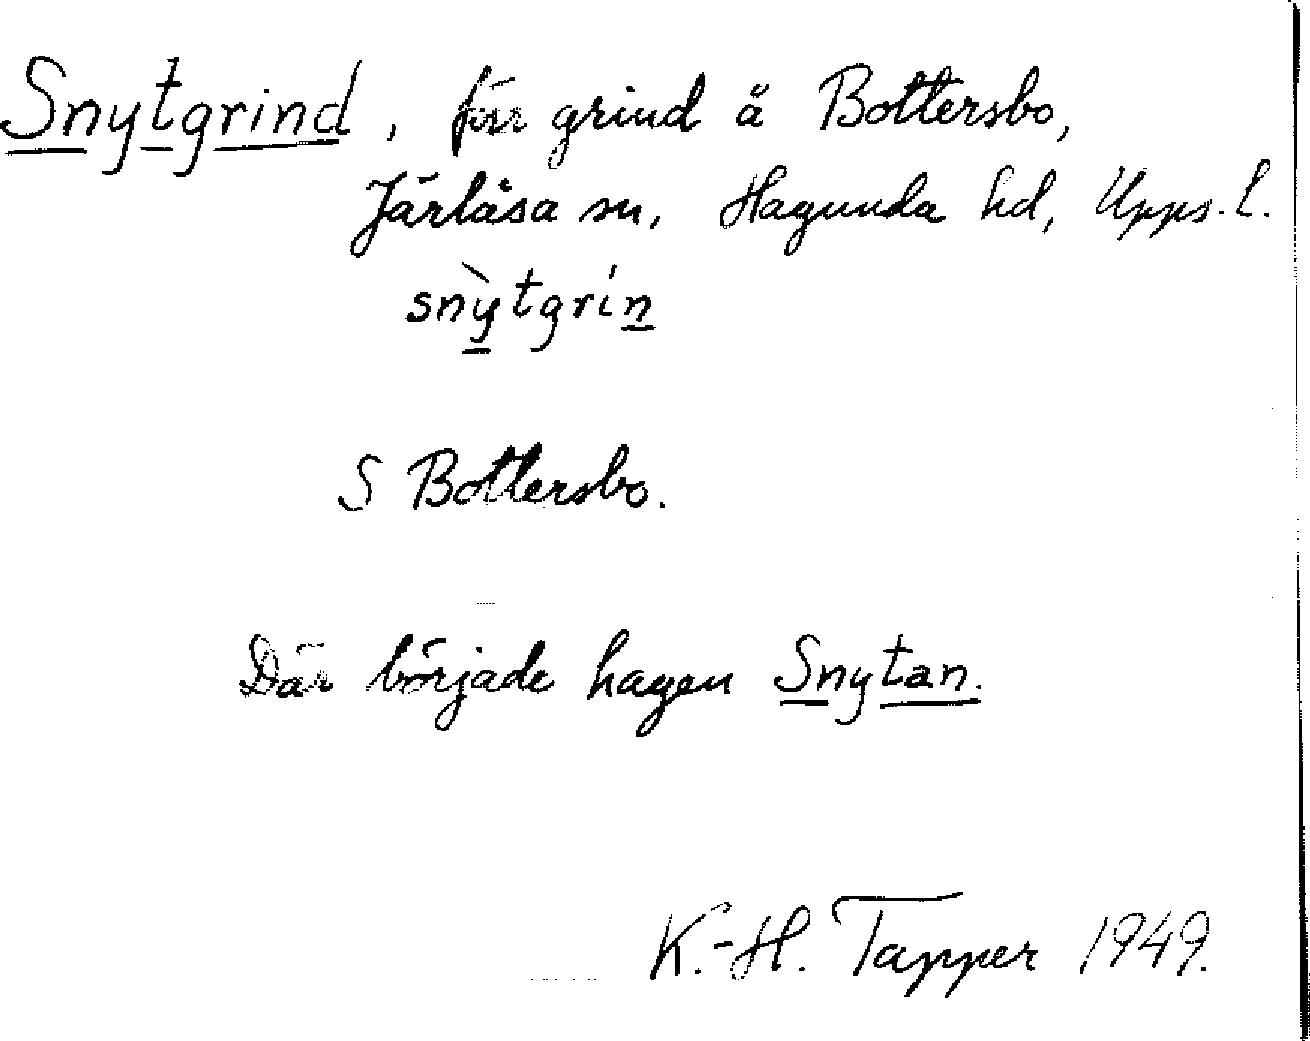 Snytgrind, förr grind å Bottersbo,
Järlåsa sn, Hagunda hd, Upps. l.
snỳ̠tgrín̠
S Bottersbo.
Där började hagen Snytan.
K.-H. Tapper 1949.